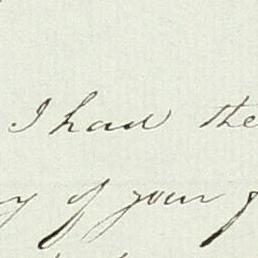 I had the
of your